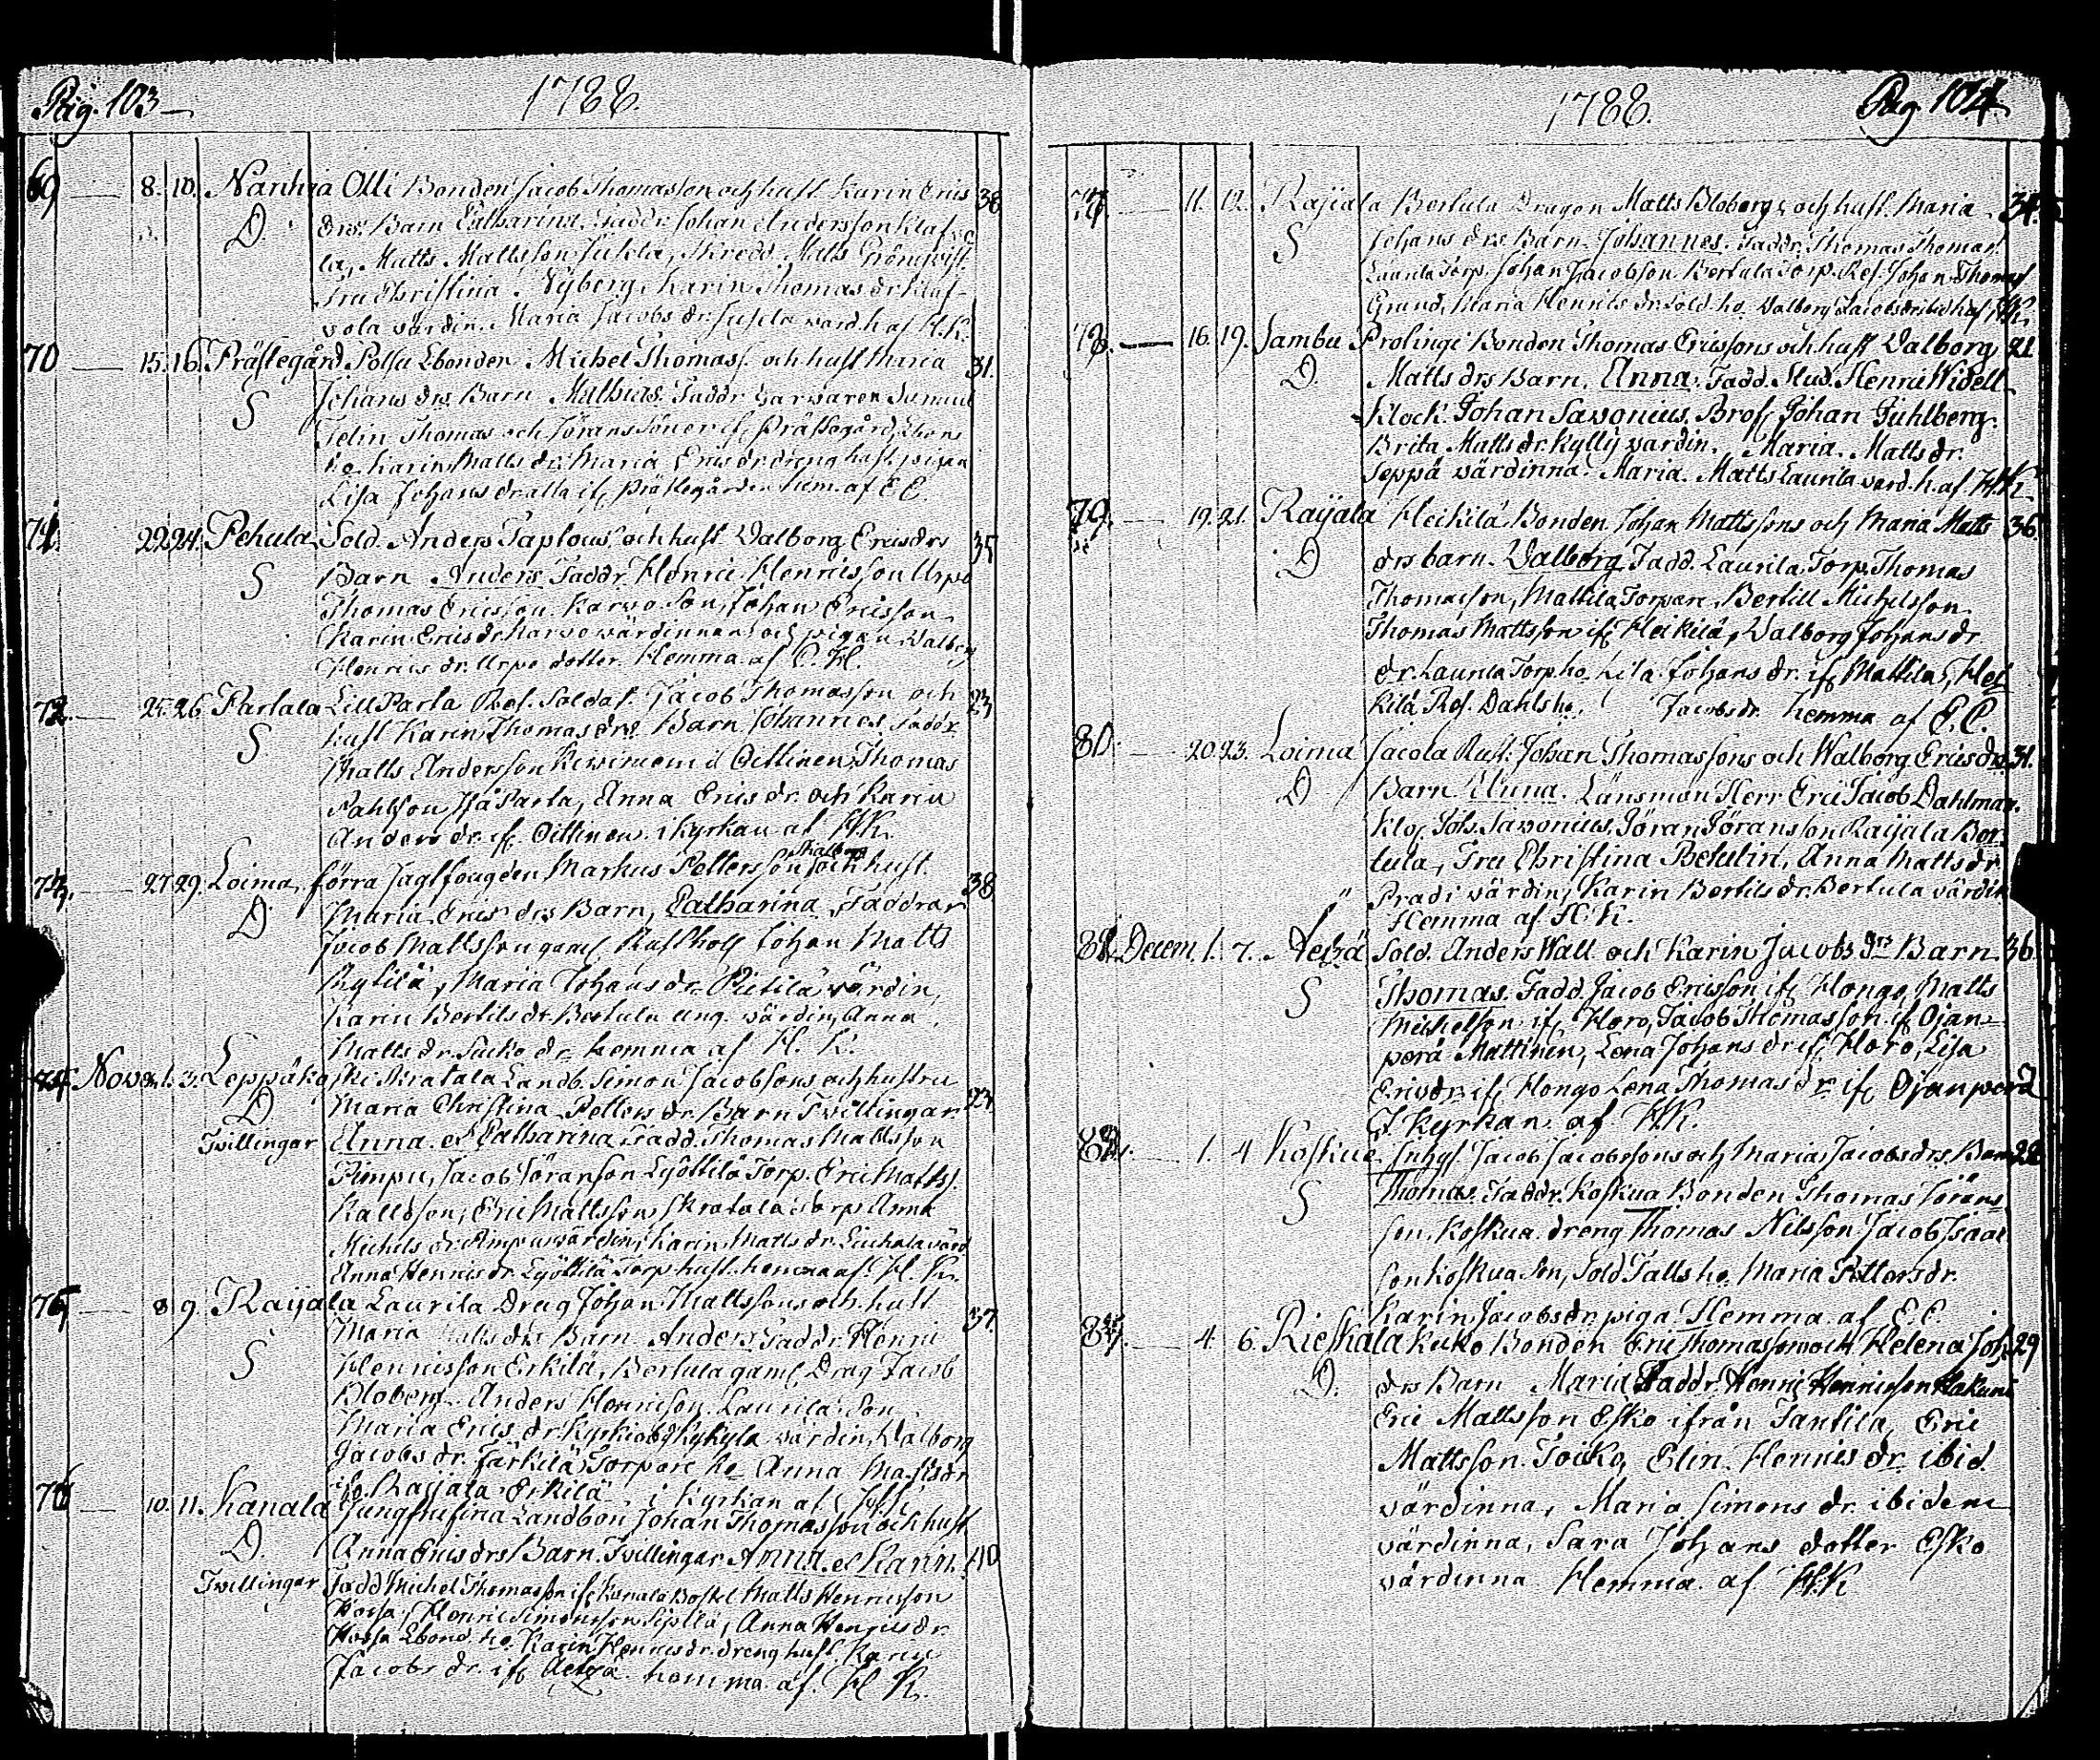 Pag. 103
1788.
69 — 8. 10. Nanhia Olli Bonden Jacob Thomasson och hust. Karin Erics 38
D. drs Barn Catharina. Faddr. Johan Andersson Klafvo
la, Matts Mattsson Juhela, Skredd. Matts Grönqvist.
Fru Christina Nyberg, Karin Thomas dr Klaf-
vola värdin. Maria Jacobs dr Juhela värd. h. af H. K.
70 — 15. 16. Prästegård Polsu Lbonden Michel Thomass. och hust Maria 31.
S Johans drs Barn Mathias. Faddr. Garvaren Samuel
Felin Thomas och Jörans Söner if. Prästegård, Lbons
ho. Karin Matts dr. Maria Erics dr dreng hust. pigan
Lisa Johans dr alla if. prästegården hem. af E. C.
71. 22. 24. Pehula Sold. Anders Taplous. och hust Valborg Ericsdrs 35
S Barn Anders Faddr. Henric Henricsson Urpo
Thomas Ericsson Karvo Son, Johan Ericsson
Karin Erics dr Karvo värdinnan och pigan Valborg
Henrics dr. Urpo dotter. Hemma af C. H.
72. — 25. 26. Partala Lill Parta Res. Soldat. Jacob Thomasson och 23
S hust Karin Thomas drs Barn Johannes Faddr.
Matts Andersson Oittinen Thomas
Pahlson Iså Parta, Anna Erics dr. och Karin
Anders dr. if. Oittinen i Kyrkan af H. K.
73. — 27. 29. Loima, förra Jagtfougden Markus Pettersson och hust. 38
D. Maria Erics drs Barn, Catharina Faddrar
Jacob Mattsson gaml. Rusthåll Johan Matts
Rytilä, Maria Johans dr. Pietilä värdin,
Karin Bertils dr Bertula ung. värdin, Anna
Matts dr. Sucko dr. hemma af H. K.
74. Nov. 1. 3. Leppäkoski Skratala Landb. Simon Jacobsons och hustru
D Maria Christina Petters dr. Barn Tvillingar 23.
Tvillingar Anna et Catharina Fadd. Thomas Mattsson
Pimpu, Jacob Jöranson Lyöttilä Torp. Eric Matts.
Kallson, Eric Mattsson Skratala Torp Anna
Michels dr. Pimpu värdin, Karin Matts dr Liuhala värd.
Anna Henrics dr Lyöttilä Torp hust. hemma af H. K.
75 — 8 9. Raijala Laurila Drag Johan Mattssons och hust 37.
S Maria Matts drs Barn Anders, Faddr. Henric
Henricsson Erkilä, Bertula gaml. Drag. Jacob
Bloberg. Anders Henricson Laurila Son
Maria Erics dr Kykylä värdin, Valborg
Jacobs dr. Färkilä Torpare ho Anna Mattsdr
if. Raijala Erkilä i Kyrkan af
76 — 10. 11. Kanala Jungfrufina Landbon Johan Thomasson och hust
D. Anna Erics drs Barn Tvillingar Anna et Karin. 40
Tvillingar Fadd Michel Thomasson if. Kanala Bostel Matts Henricsson
Hossa, Henric Simonsson Sipilä, Anna Henrics dr
Hossa Lbond. ho. Karin Henrics dr. dreng hust. Karin
Jacobs dr. if. Aetzä. hemma af. H K.
1788.
Pag. 104.
77. — 11. 12. Raijala Bertula Dragon Matts Blobergs och hust. Maria 34.
S Johans drs Barn Johannes. Faddr. Thomas Thomas.
Laurila Torp. Johan Jacobson Bertula Torp. Res. Johan Thomas
Grund, Maria Henrics dr. Sold. ho. Valborg Jacobs dr ibid h. af H.K.
78. — 16. 19. Sambu Prolingi Bonden Thomas Ericssons och hust Valborg 21
D. Matts drs Barn. Anna. Fadd. Stud. Henric Widell
Klock. Johan Savonius. Brof. Johan Juhlberg.
Brita Matts dr. Kylly värdin. Maria Matts dr.
Seppä värdinna. Maria. Matts Laurila värd. h. af H.K.
79. — 19. 21. Raijala Heikilä Bonden Johan Mattssons och Maria Matts 36
D drs barn. Valborg Fadd. Laurila Torp. Thomas
Thomasson, Mattila Torpare, Bertill Michelsson
Thomas Mattsson if. Heikilä, Valborg Johans dr
dr. Laurila Torp ho. Lisa Johans dr. if. Mattila, Hei
kilä Res. Dahls ho. Jacobs dr. hemma af E. C.
80. — 20. 23. Loima Jacola Rust. Johan Thomassons och Walborg Erics drs 31.
D Barn Anna. Länsman Herr Eric Jacob Dahlman.
Kloc. Joh. Savonius. Jöran Jöransson Raijala Ber
tula, Fru Christina Betulin, Anna Matts dr
Pradi värdin, Karin Bertils dr. Bertula värdin
Hemma af H. K.
81. Decem. 1. 7. Aetzä Sold. Anders Wall och Karin Jacobs drs Barn. 36
S Thomas Fadd. Jacob Ericsson if. Hongo, Matts
Michelson if. Horo, Jacob Thomasson if Ojan-
perä Mattinen, Lena Johans dr if. Horo, Lisa
Erics dr. if. Hongo Lena Thomas dr. if. Ojanperä
I Kyrkan af H.K.
82. — 1. 4 Koskue Inhys. Jacob Jacobssons och Maria Jacobs drs Barn 28
S Thomas. Faddr. Koskua Bonden Thomas Jörans
son, Koskua dreng Thomas Nilsson Jacob Isaac
son Koskua Son, Sold Talls ho. Maria Petters dr.
Karin Jacobs dr. piga. Hemma af E. C.
83. — 4. 6. Rieskala Kuko Bonden Eric Thomassons och Helena Joh. 29
D. drs Barn Maria Faddr. Henric Henricsson Hakuni
Eric Mattsson Esko ifrån Tantila, Eric
Mattsson Toiko, Elin Henrics dr. ibid.
värdinna, Maria Simons dr. ibidem
värdinna, Sara Johans dotter Esko
värdinna Hemma af H.K